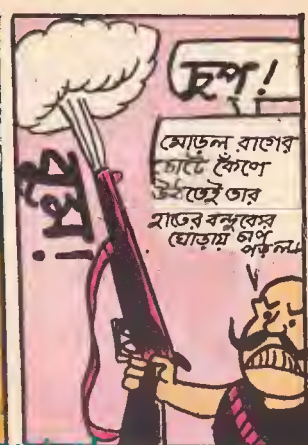 চুপ!
মোড়ল রাগের
চোটে কেঁপে
উঠতেই তার
হাতের বন্দুকের
ঘোড়ায় চাপ
পড়ল
বুম!